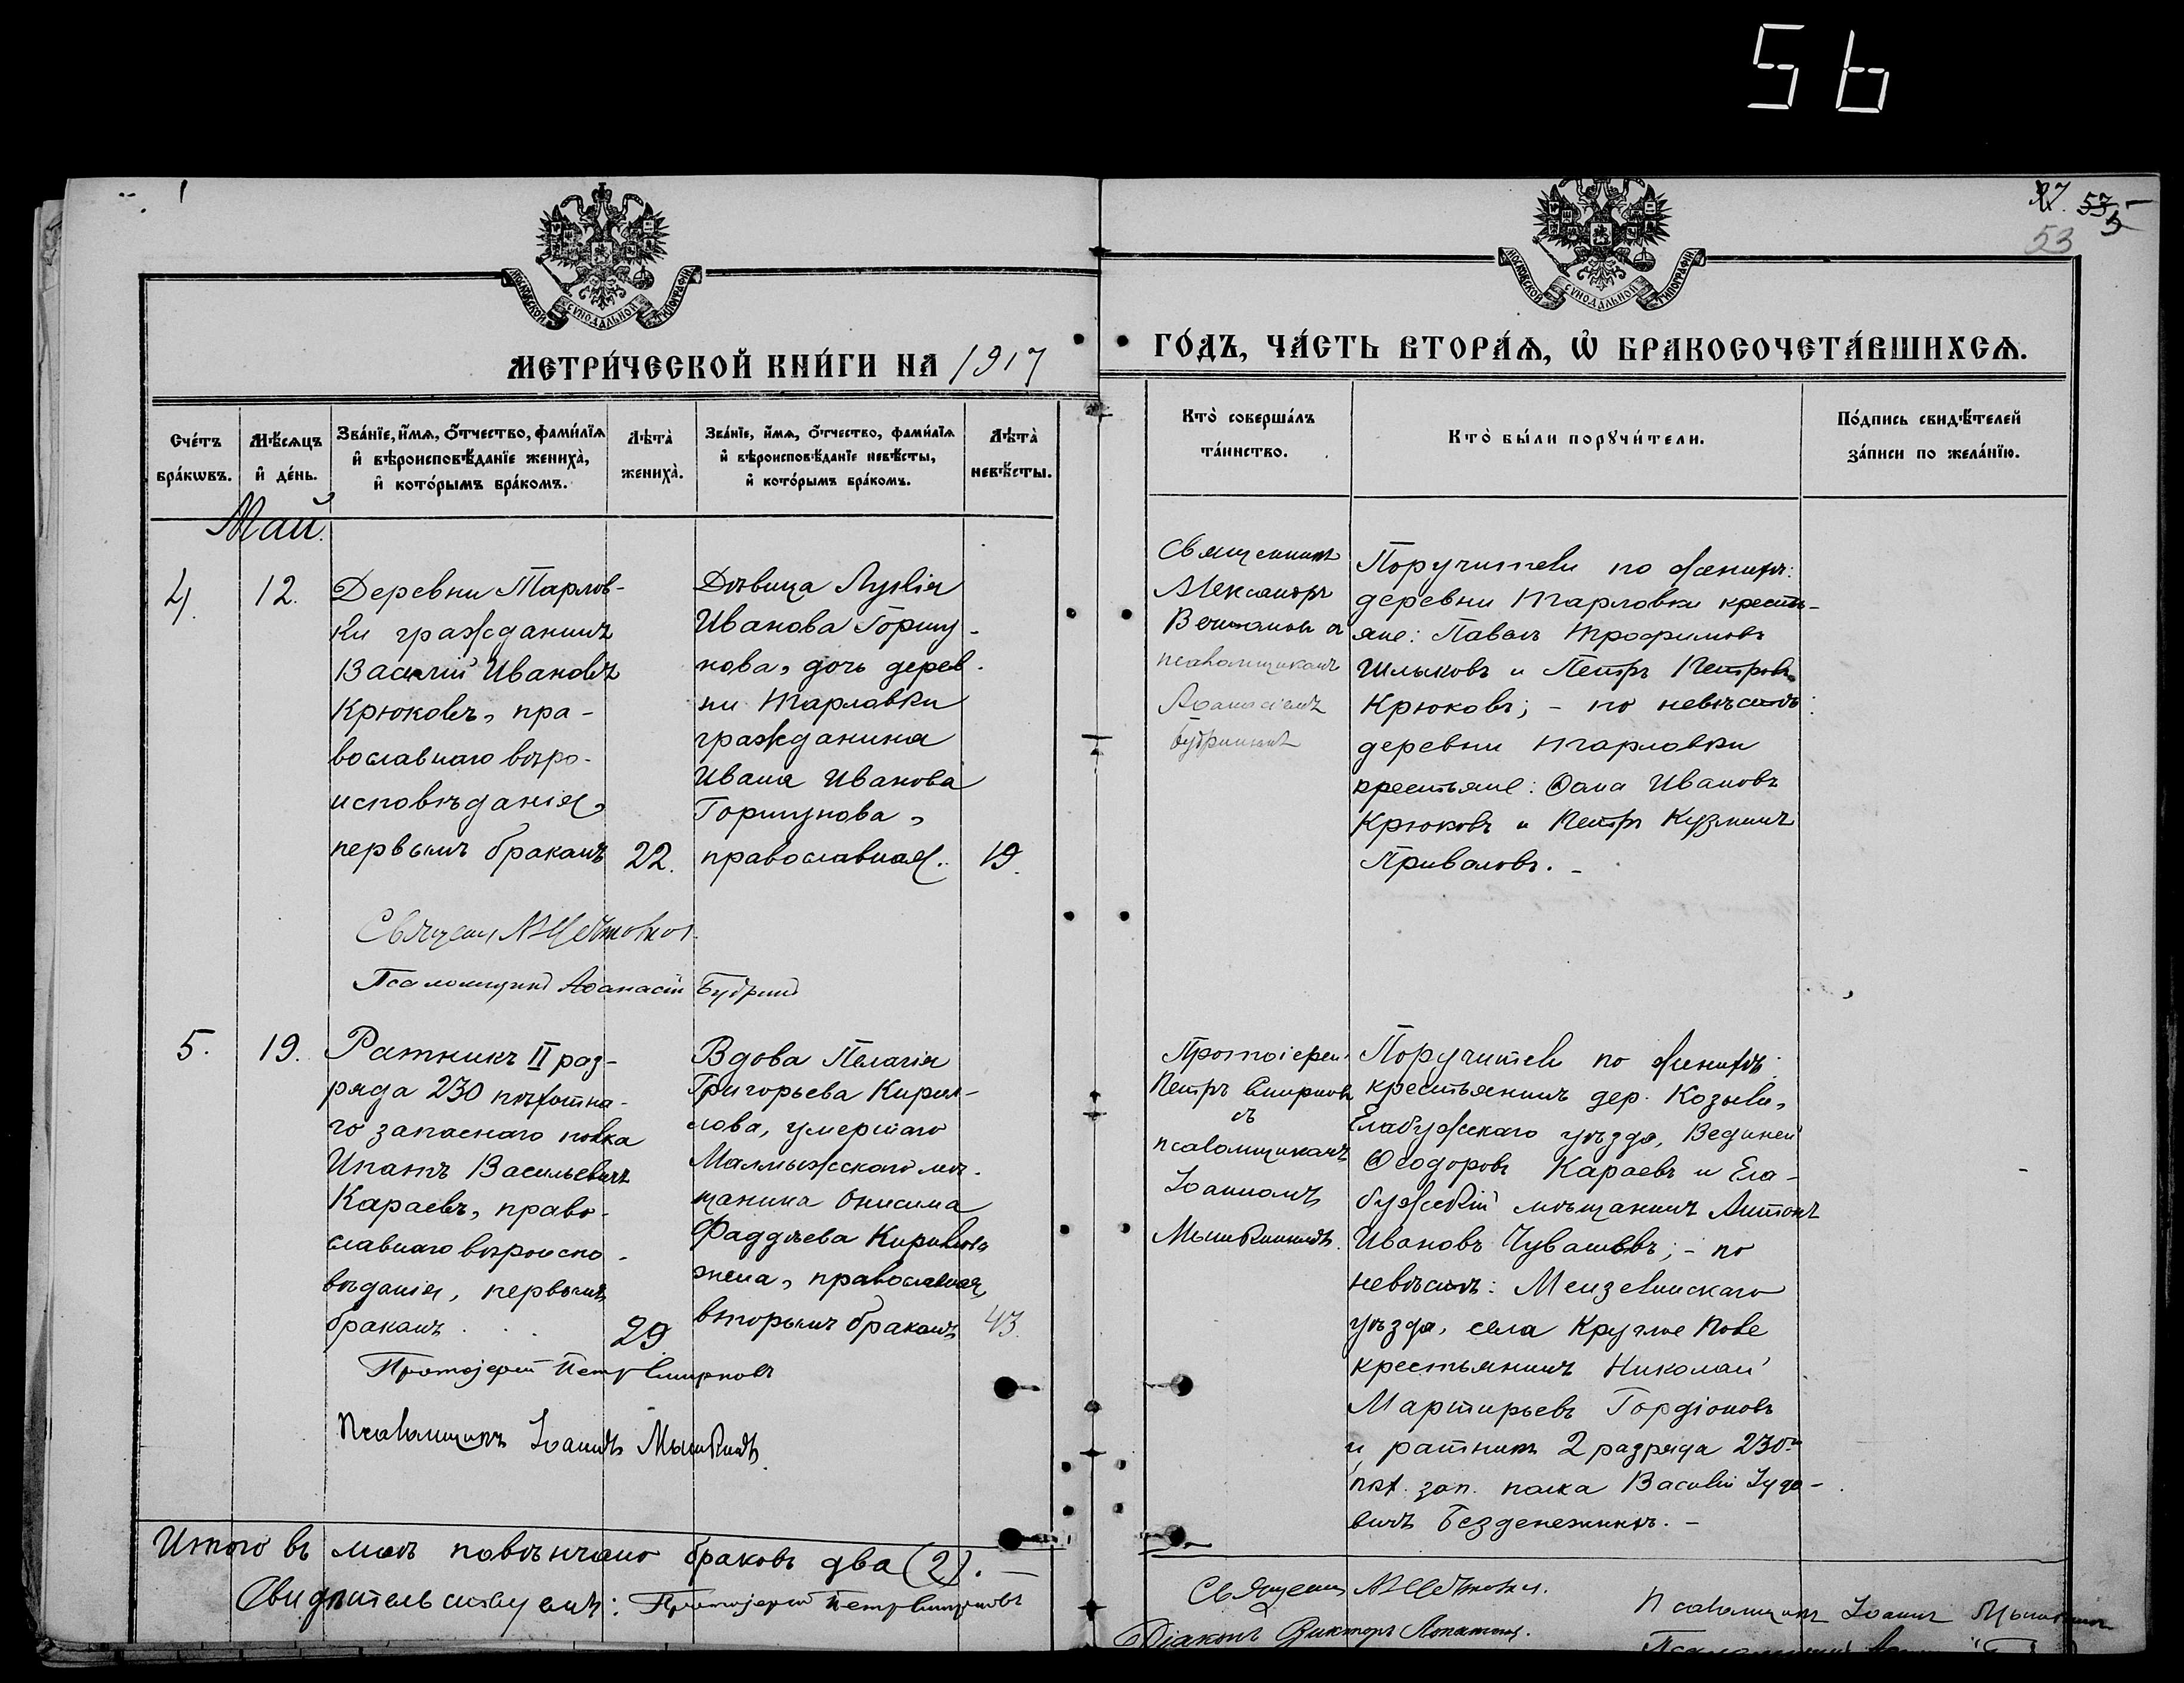 56
27. 53
53
МОСКОВСКОЙ СѴНОДАЛЬНОЙ ТИПОГРАФІИ
МОСКОВСКОЙ СѴНОДАЛЬНОЙ ТИПОГРАФІИ
МЕТРИ́ЧЕСКОЙ КНИ́ГИ НА 1917
ГО́ДЪ, ЧА́СТЬ ВТОРА́Ѧ, Ѡ БРАКОСОЧЕТА́ВШИХСѦ.
Сче́тъ бра́кѡвъ.
Мѣ́сѧцъ и҆ де́нь.
Зва́нїе, и҆́мѧ, ѻ҆́тчество, фами́лїѧ
и҆ вѣроисповѣ́данїе жениха̀,
и҆ кото́рымъ бра́комъ.
Лѣта̀ жениха̀.
Зва́нїе, и҆́мѧ, ѻ҆́тчество, фами́лїѧ
и҆ вѣроисповѣ́данїе невѣ́сты,
и҆ кото́рымъ бра́комъ.
Лѣта̀ невѣ́сты.
Кто̀ соверша́лъ
та́инство.
Кто̀ бы́ли порꙋчи́тели.
По́дпись свидѣ́телей
за́писи по жела́нїю.
Май.
4.
12.
Деревни Тарлов-
ки гражданинъ
Василій Ивановъ
Крюковъ, пра-
вославнаго вѣро-
исповѣданія,
первымъ бракомъ
22.
Дѣвица Лукія
Иванова Горшу-
нова, дочь дерев-
ни Тарловки
гражданина
Ивана Иванова
Горшунова,
православная.
19.
Священникъ
Александръ
псаломщикомъ
Аѳанасіемъ
Бубринымъ
Поручители по женихѣ:
деревни Тарловки кресть-
яне: Павелъ Трофимовъ
Шлыковъ и Петръ Петровъ
Крюковъ; - по невѣстѣ:
деревни Тарловки
крестьяне: Ѳома Ивановъ
Крюковъ и Петръ Кузминъ
Приваловъ. -
Священ.
Псаломщикъ Аѳанасій Бубринъ
5.
19.
Ратникъ II раз-
ряда 230 пѣхотна-
го запаснаго полка
Ипатъ Васильевичъ
Караевъ, право-
славнаго вѣроиспо-
вѣданія, первымъ
бракомъ . .
29
Вдова Пелагія
Григорьева Кирил-
лова, умершаго
Малмыжскаго мѣ-
щанина Онисима
Фаддѣева Кирилова
жена, православная,
вторымъ бракомъ
43.
Протоіерей
Петръ Смирновъ
съ
псаломщикомъ
Іоанномъ
Мышкинымъ.
Поручители по женихѣ:
крестьянинъ дер. Козыли,
Елабужскаго уѣзда,
Ѳеодоровъ Караевъ и Ела-
бужскій мѣщанинъ Антонъ
Ивановъ Чувашевъ; - по
невѣстѣ: Мензелинскаго
уѣзда, села Круглое Поле
крестьянинъ Николай
Мартирьевъ Гордіоновъ
и ратникъ 2 разряда 230го
пѣх. зап. полка Василій Іудо-
вичъ Безденежныхъ. -
Протоіерей Петръ Смирновъ
Псаломщикъ Іоаннъ Мышкинъ.
Итого въ маѣ повѣнчано браковъ два (2). -
Свидѣтельствуемъ: Протоіерей Петръ Смирновъ
Священ.
Діаконъ Викторъ Лопатинъ.
Псаломщикъ Іоаннъ Мышкинъ